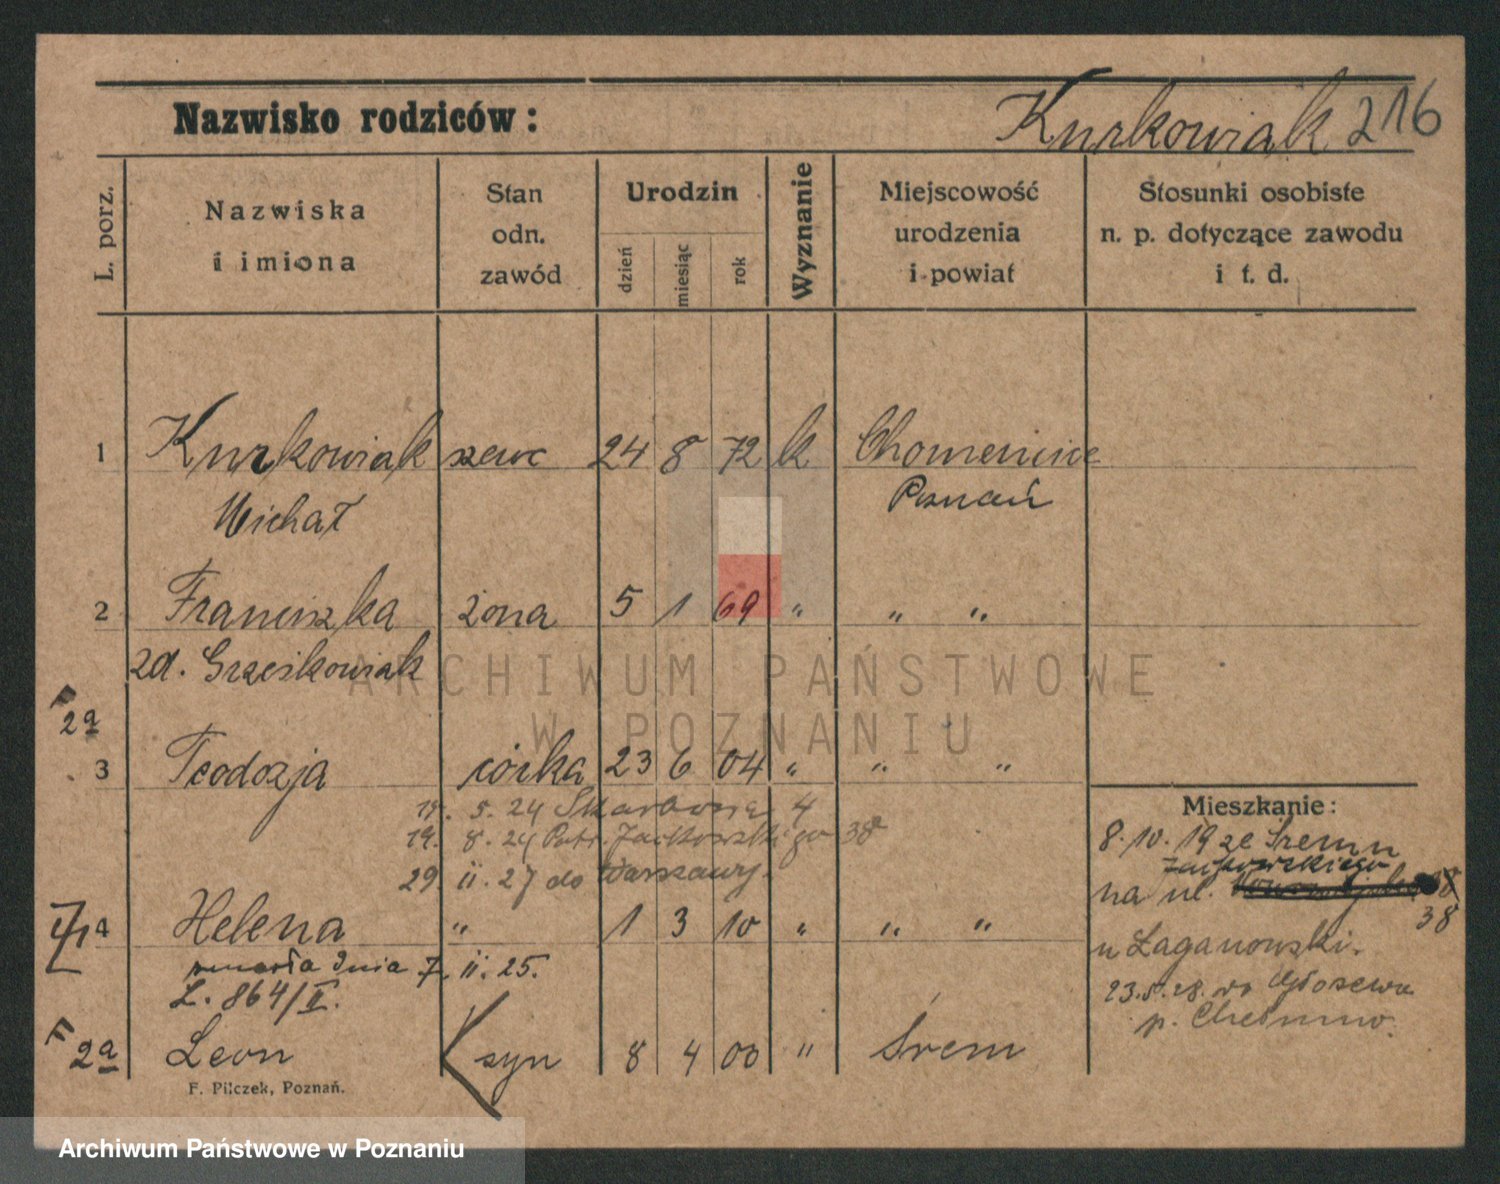 Nazwisko rodziców: Kurkowiak 216
L. porz.
Nazwiska i imiona
Stan odn. zawód
Urodzin
dzień miesiąc rok
Wyznanie
Miejscowość urodzenia i powiat
Stosunki osobiste n. p. dotyczące zawodu i t. d.
1 Kurkowiak szewc 24 8 72 k Chomencice
Michał Poznań
2 Franciszka żona 5 1 69 " " "
zd. Grześkowiak
F 2a
3 Teodozja córka 23 6 04 " " "
5. 24 Skarbowa 4
19. 8. 24 Patr. Jackowskiego 38
29. 11. 27 do Warszawy.
4 Helena " 1 3 10 " " "
zmarła dnia 7. 11. 25.
L. 864/II.
F 2a Leon syn 8 4 00 " Śrem
Mieszkanie:
8. 10. 19 ze Śremu
Jackowskiego
na ul.
38
u Łaganowski.
23. 5. 28. do
p.
F. Pilczek, Poznań.
ARCHIWUM PAŃSTWOWE
W POZNANIU
Archiwum Państwowe w Poznaniu